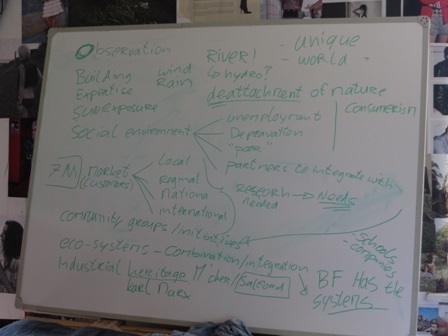 Observation
RIVER!
- unique
- world
Building wind
↳ hydro?
Expertise Rain
deattachment of nature
Sun Exposure
consumerism
Social environment
unemploymant
Depravation
"poor"
partners to integrate with
7M market
(customers)
Local
Regional
National
international
research → Needs
needed
community groups/initiatives
eco-systems - combination/integration
schools
- companies
Industrial hereitage
Karl Marx
Salford
BF Has the
systems